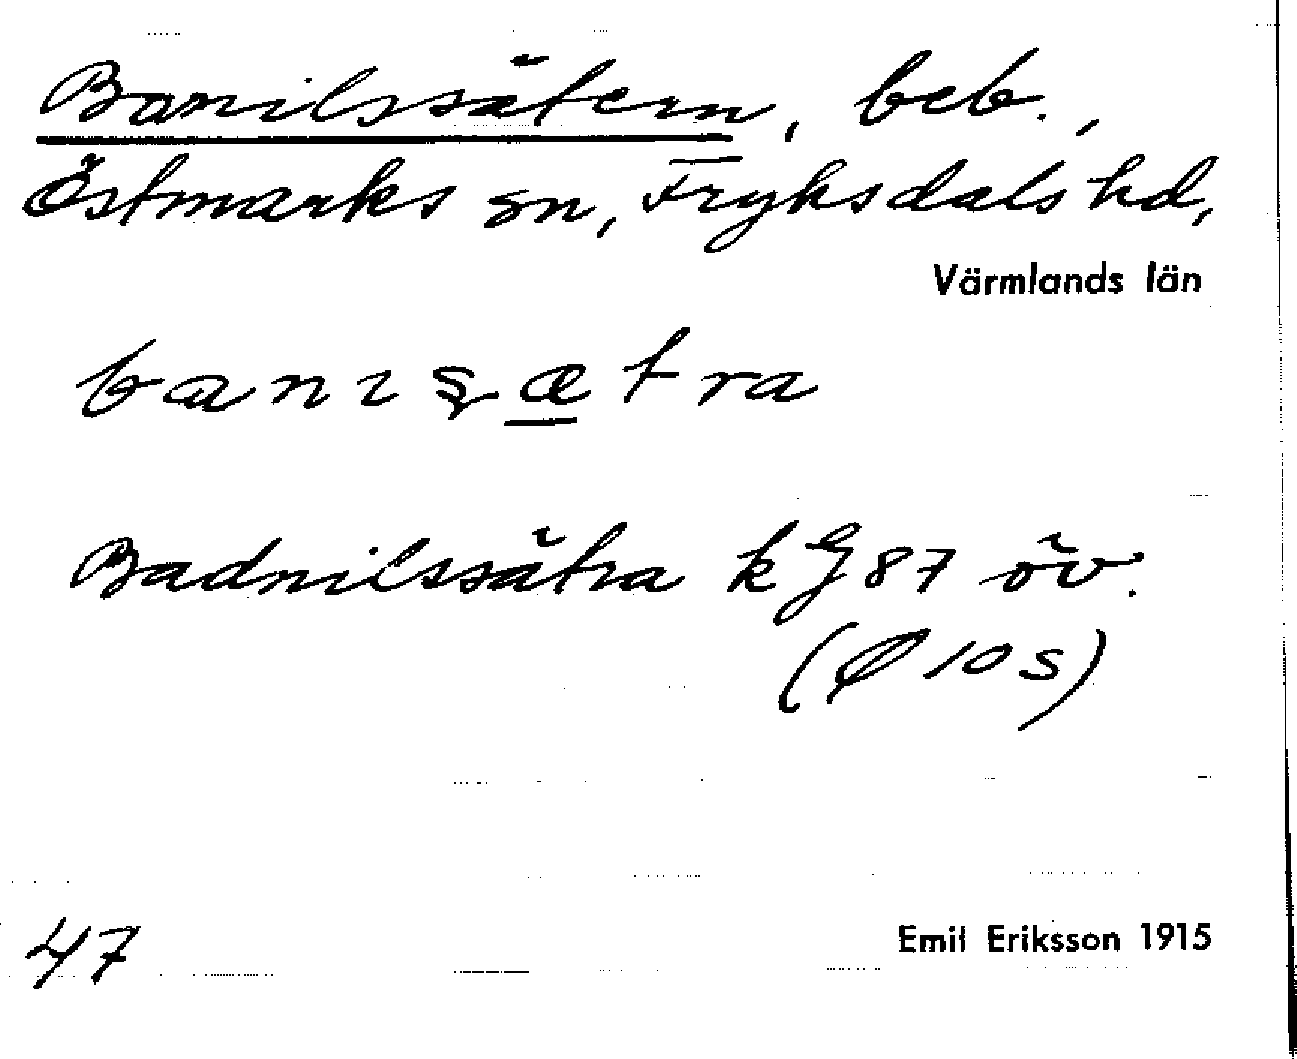 Banilssätern, beb.,
Östmarks sn, Fryksdals hd,
Värmlands län
banısætra
Badnilssätra k G 87 öv.
(Ø 10 S)
47
Emil Eriksson 1915